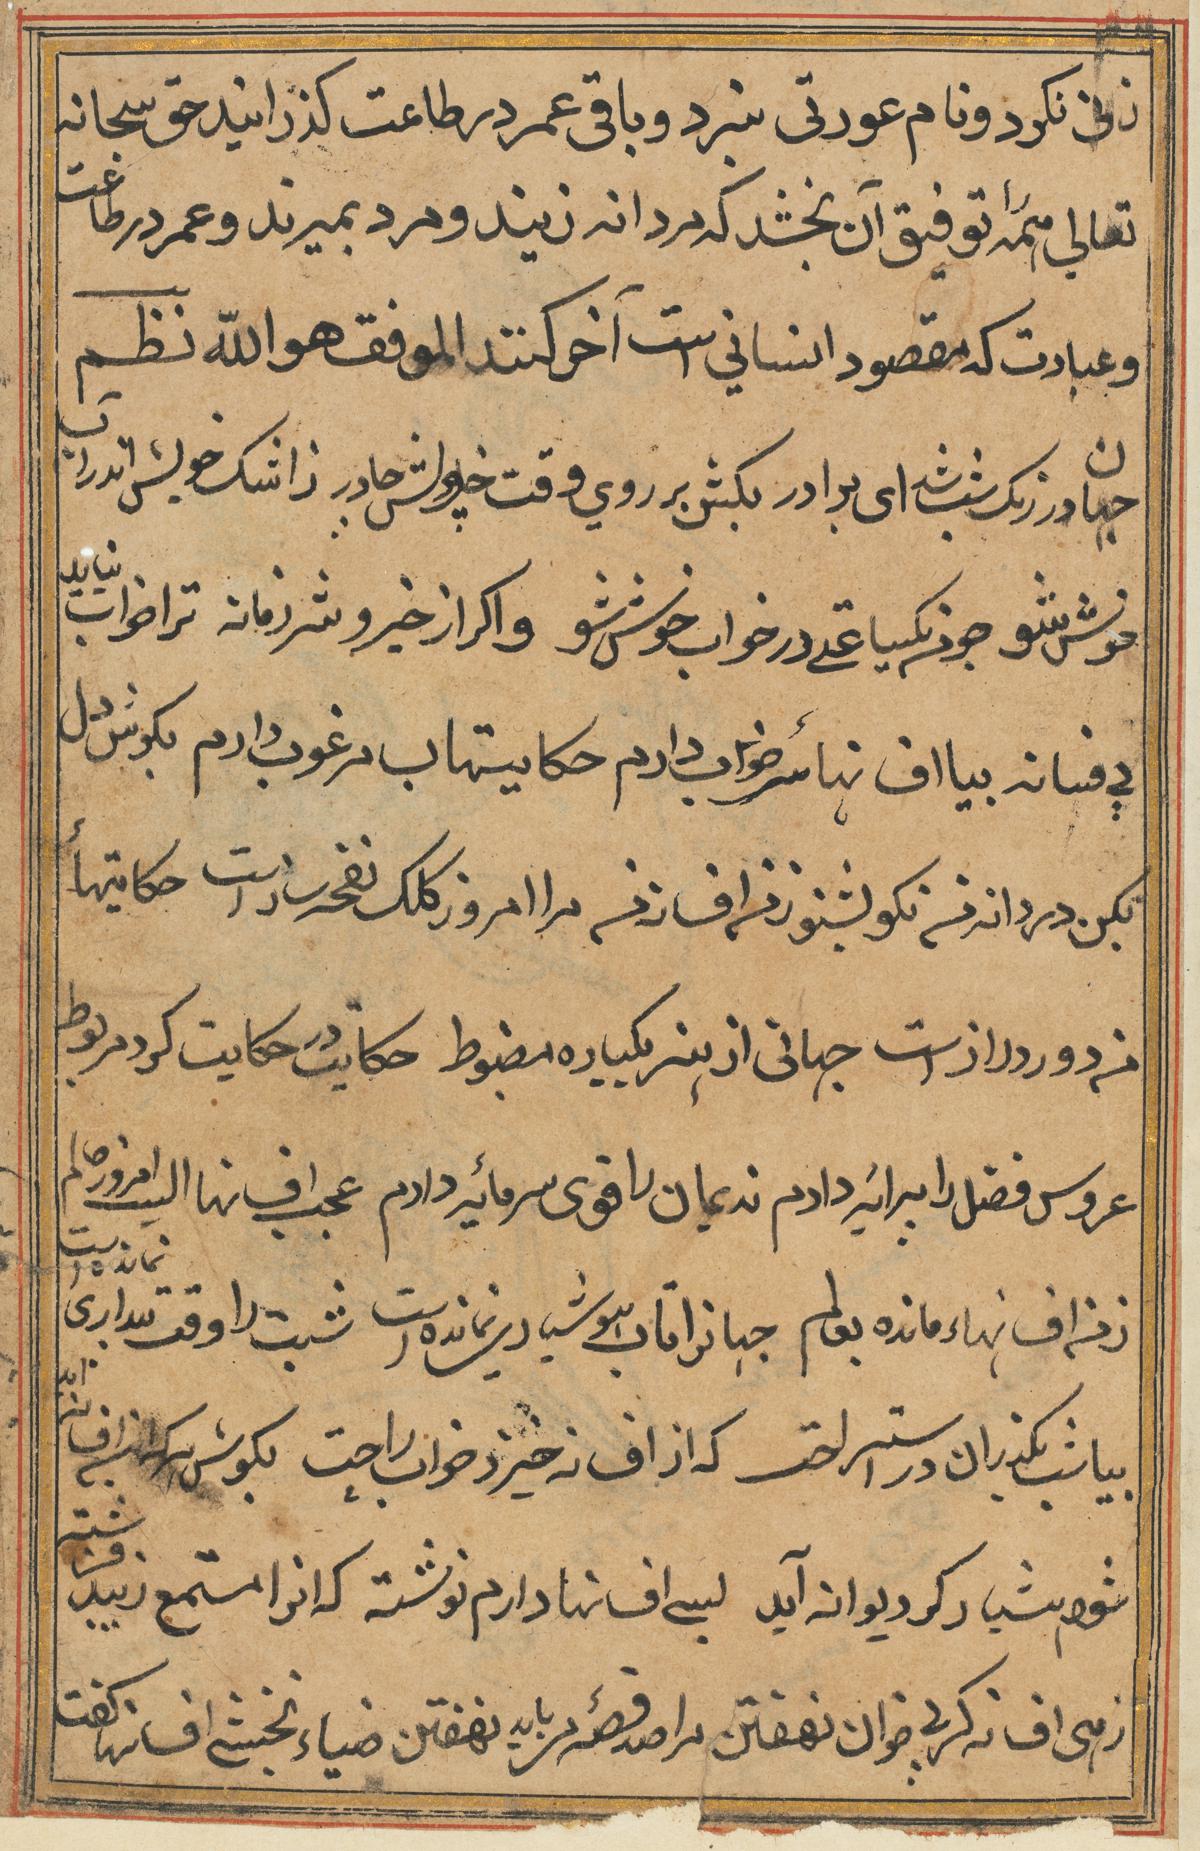 زنی نکرد و نام عورتی نبرد و باقی عمر در طاعت کذرانید حق سبحانه
تعالی همه را توفیق آن بخشد که مردانه زیند و مرد بمیرند و عمر در طاعت
و عبادت که مقصود انسانی است آخر کنند الموفق هو الله نظم
جهان در رنک شب شد ای برادر بکش بر روی وقت خویش چادر ز اشک خویش اندر آب
خوش شو چو نیکی ساعتی در خواب خوش شو و اکر از خیر و شر زمانه ترا خواب نیاید
بی فسانه بیا افسانهاء سر خواب دارم حکایتهاء مرغوب دارم بکوش دل
نکو بشنو ز من افسانه من مرا امروز کلک نغمه ساز است حکایتهاء
من دور و دراز است جهانی از هنر یکباره مضبوط حکایت در حکایت کرده مربوط
عروس فضل را پیرایه دارم ندیمان را قوی سرمایه دارم عجب افسانها الیب امروز حالم
ز من افسانهاء مانده بعالم جهانرا تاب هوشیاری نمانده است شبت را وقت بیداری نمانده است
بیا شب بکذران در استراحت که از افسانه خیزد خواب راحت بکوش هر که افسانه آید
شود هشیار کر دیوانه آید بسی افسانها دارم نوشته که انرا مستمع زیبد فرشته
زهی افسانه کر بی خوان نهفتن مرا صد قصه می باید نهفتن ضیاء نخشبی افسانها کفت